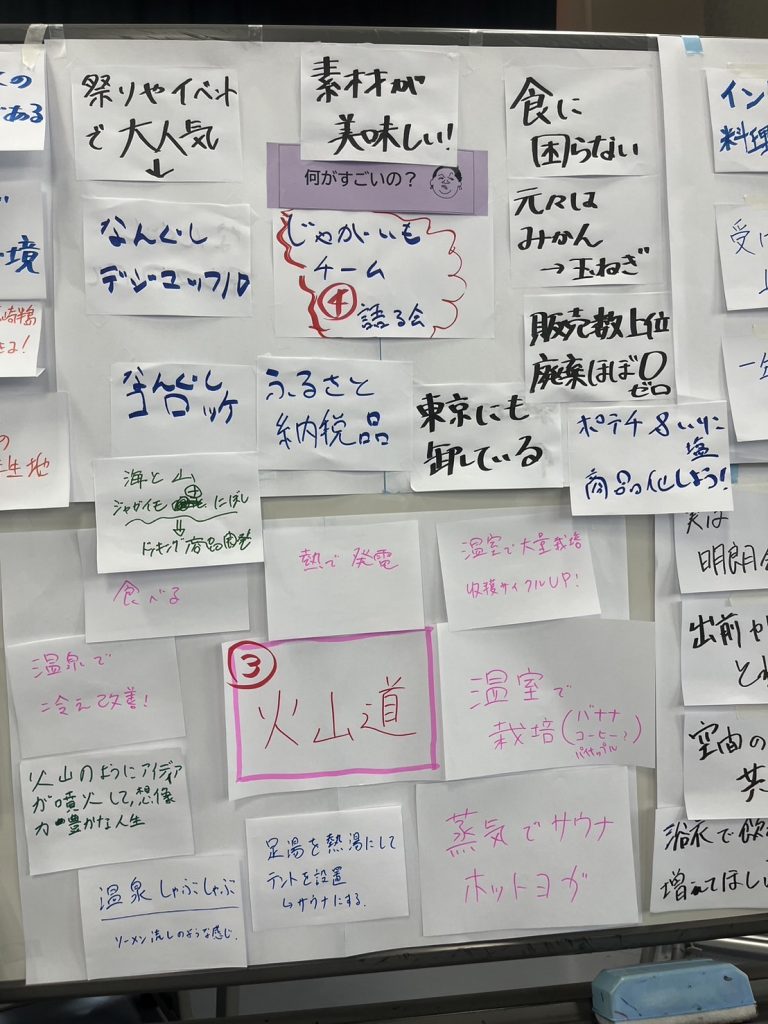 祭りやイベント
で大人気
↓
素材が
美味しい!
食に
困らない
何がすごいの？
なんぐし
じゃがいも
チーム
④
語る会
元々は
みかん
→玉ねぎ
販売数上位
廃棄ほぼ0
ゼロ
なんぐし
コロッケ
ふるさと
納税品
東京にも
卸している
ポテチ
塩
商品化しよう!
海と山
ジャガイモ
にぼし
↓
ドッキング商品開発
食べる
熱で発電
温室で大量栽培
収穫サイクルUP!
温泉で
冷え改善!
③
火山道
温室で
栽培(バナナ
コーヒー?
パイナップル)
火山のようにアイディア
が噴火して、想像
力豊かな人生
温泉しゃぶしゃぶ
ソーメン流しのような感じ.
足湯を熱湯にして
テントを設置
↳サウナにする.
蒸気でサウナ
ホットヨガ
の
である
境
崎半島
きる!
の
生地
イン
料理
受け
一年
実は
明朗会
出前や
とれ
空宙の
共
浴衣で飲
増えてほしい